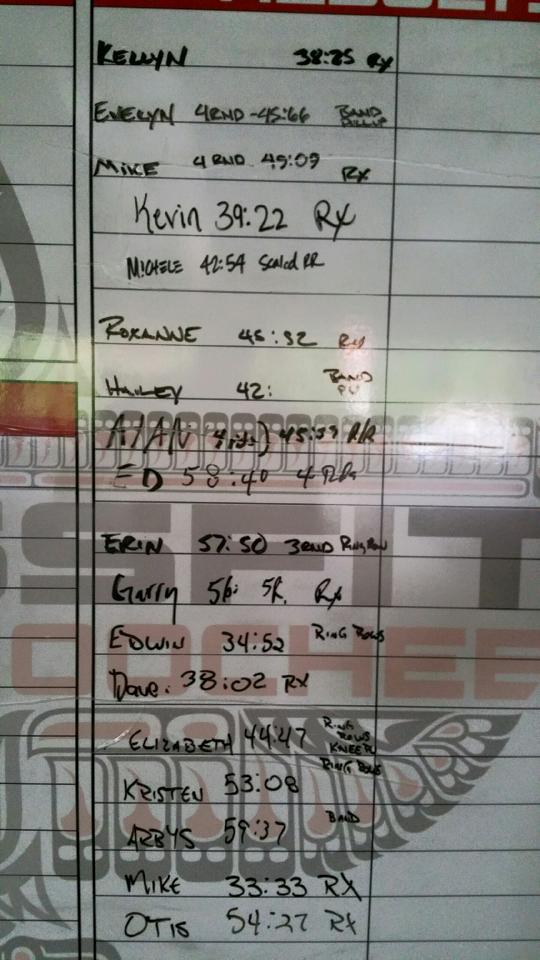 KELLYN 38:25 RX
EVELYN 4RND -45:66 BAND
MIKE 4 RND 49:09 RX
Kevin 39:22 RX
MICHELE 42:54 Scaled RR
ROXANNE 45:52 RX
HAILEY 42: BAND PU
ALAN 45:59 R/R
ED 58:40 4 RR
ERIN 57:50 3RND RING ROW
Garry 56: 56. Rx
EDWIN 34:52 RING ROWS
Dave. 38:02 RX
ELIZABETH 44:47 RING ROWS KNEE PU
KRISTEN 53:08 RING ROWS
ARBYS 59:37 BAND
MIKE 33:33 RX
OTIS 54:27 RX